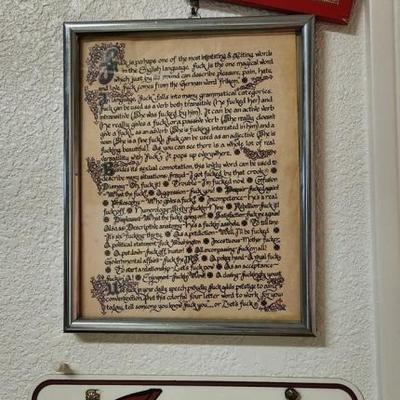 Fuck is perhaps one of the most interesting & exciting words
in the English language. Fuck is the one magical word
which just by its sound can describe pleasure, pain, hate,
and love. Fuck comes from the German word frikon.
In language, "fuck" falls into many grammatical categories.
Fuck can be used as a verb both transitive (He fucked her) and
intransitive (She was fucked by him). It can be an active verb
(He really gives a fuck), or a passive verb (She really doesn't
give a fuck), as an adverb (She is fucking interested in him) and a
noun (She is a fine fuck). Fuck can be used as an adjective (She is
fucking beautiful). As you can see there is a whole lot of real
versatility with "fuck". It pops up everywhere.
Besides its sexual connotation, this lovely word can be used to
describe many situations: Fraud - I got fucked by that crook
Dismay - Oh, fuck it! Trouble - I'm fucked now Confusion
What the fuck! Aggression - Fuck you!
Philosophy - Who gives a fuck! Incompetence - He's a real
fuckoff Rebellion - Fuck it!
Displeasure - What the fuck going on!!
Also as: Descriptive anatomy - He's a fucking asshole To tell time
It's six-fucking-thirty As a prediction - Well, I'll be fucked
A political statement - Fuck Washington Incestuous - Mother fucker
A put down - fuck off, buster All encompassing - fuck em all!
Governmental affairs - fuck the IRS
To start a relationship - Let's fuck now As an acceptance -
Fuckin A!
Use fuck in your daily speech proudly. Fuck adds prestige to any
conversation. Put this colorful four letter word to work for you
today, tell someone you know fuck you... or Let's fuck